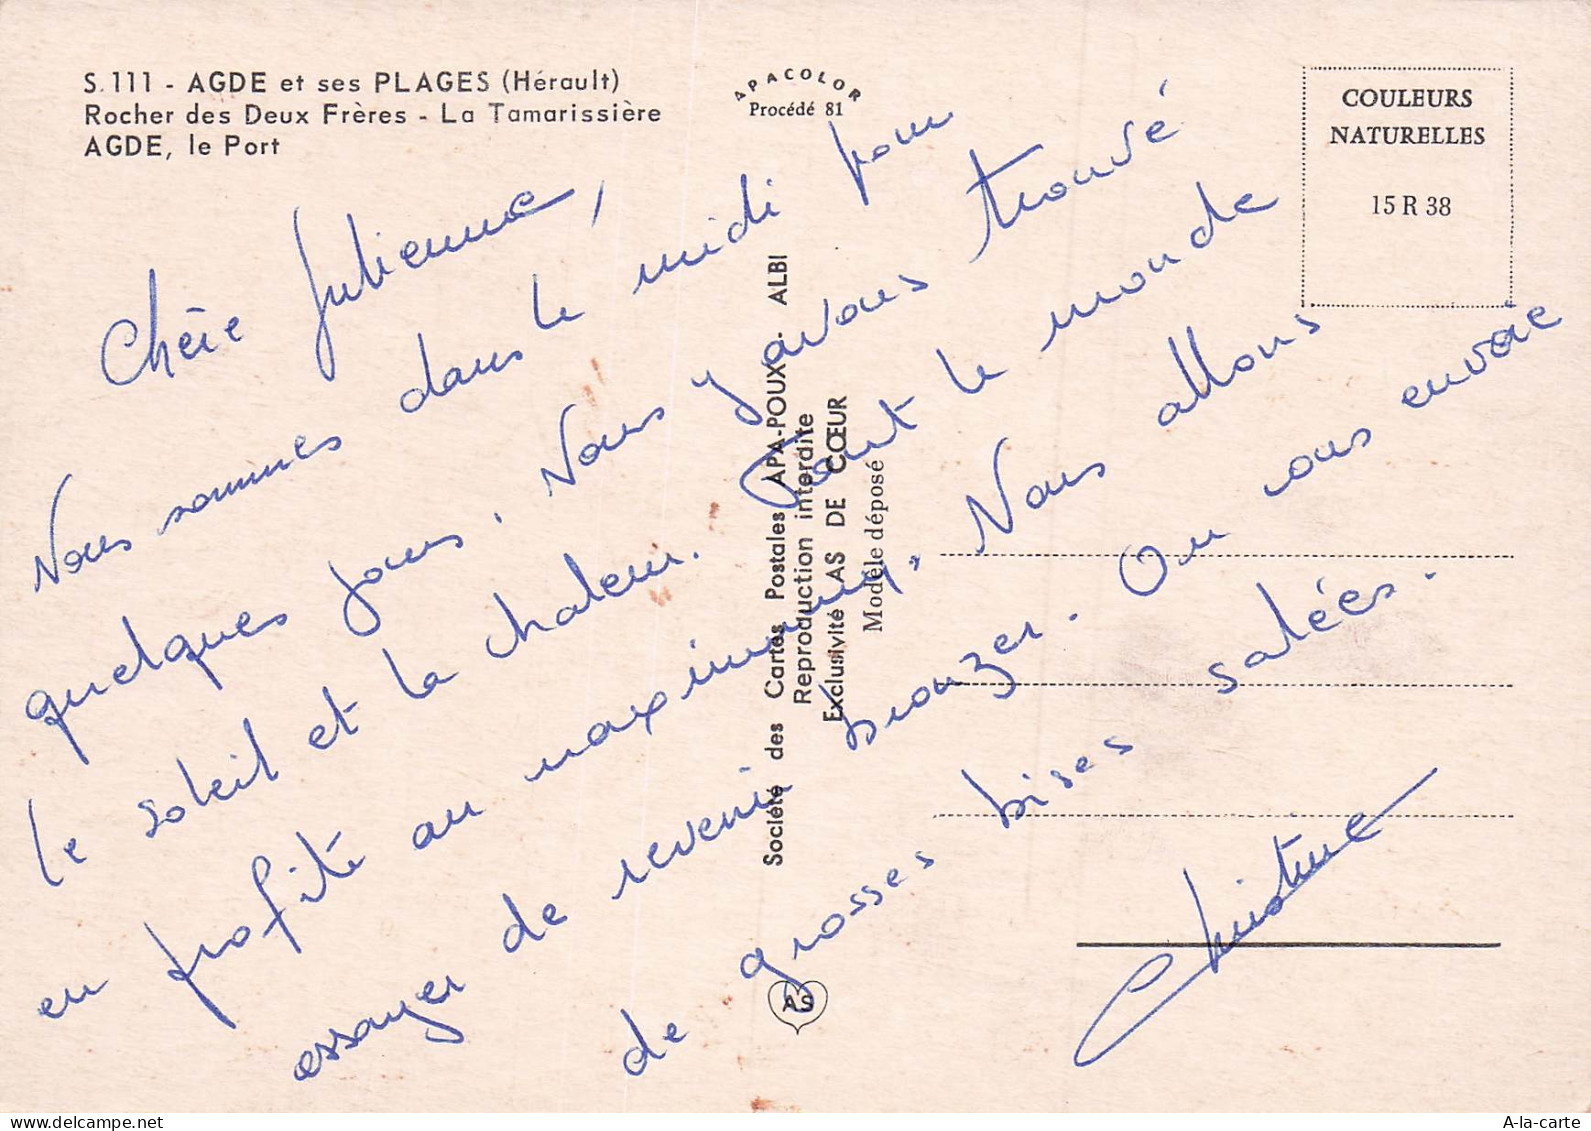 S.111 - AGDE et ses PLAGES (Hérault)
Rocher des Deux Frères - La Tamarissière
AGDE, le Port
APACOLOR
Procédé 81
COULEURS
NATURELLES
15 R 38
Chère Julienne,
Nous sommes dans le midi pour
quelques jours. Nous y avons trouvé
le soleil et la chaleur. Tout le monde
en profite au maximum. Nous allons
essayer de revenir bronzer. On vous envoie
de grosses bises salées.
Christine
Société des Cartes Postales APA-POUX - ALBI
Reproduction interdite
Exclusivité AS DE CŒUR
Modèle déposé
AS
A-la-carte